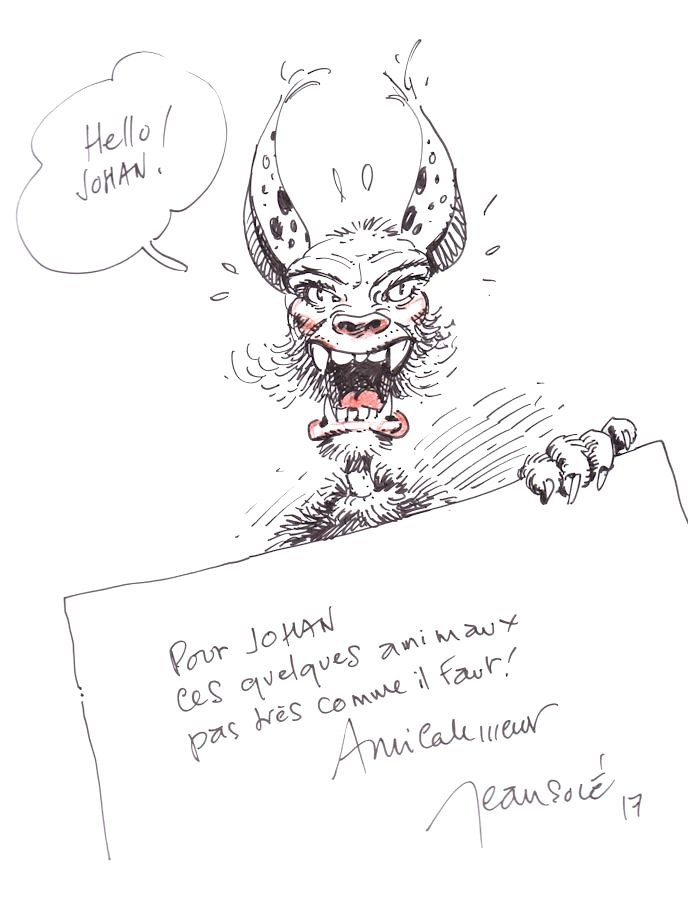 Hello!
JOHAN!
Pour JOHAN
ces quelques animaux
pas très comme il faut!
Amicalement
Jean Solé
17